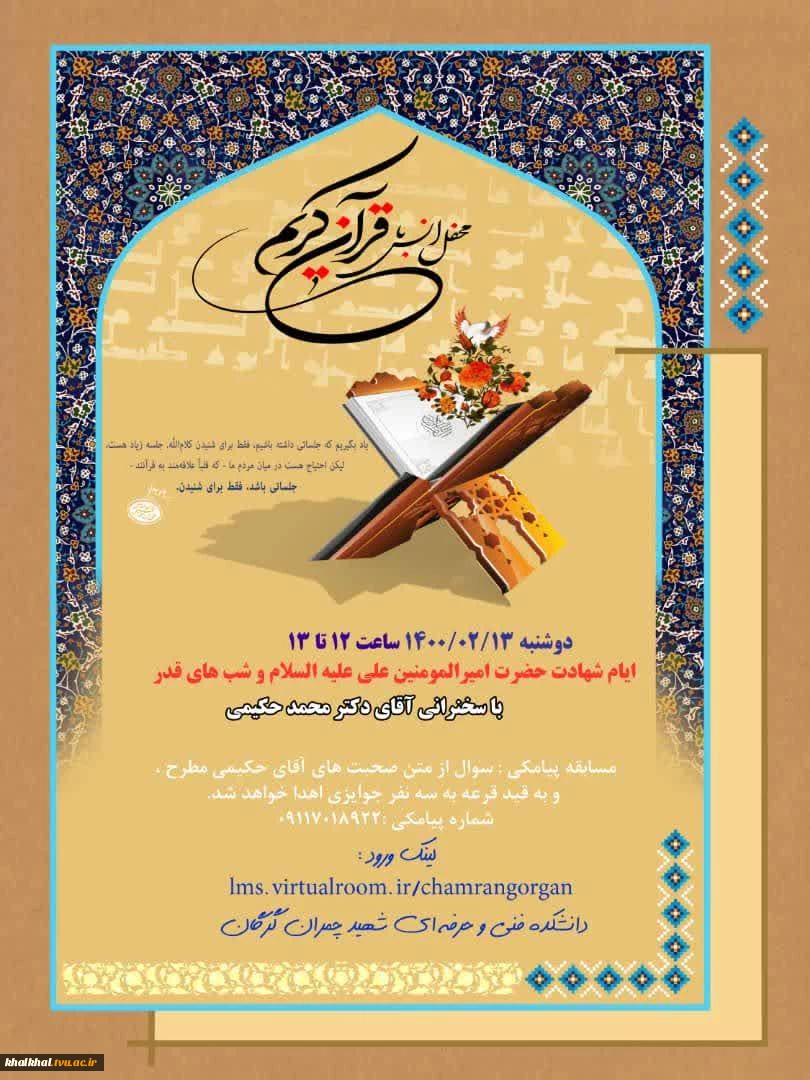 محفل انس با قرآن کریم
یاد بگیریم که جلساتی داشته باشیم، فقط برای شنیدن کلام‌الله. جلسه زیاد هست،
لیکن احتیاج هست در میان مردم ما - که قلباً علاقه‌مند به قرآنند -
جلساتی باشد، فقط برای شنیدن.
دوشنبه ۱۴۰۰/۰۲/۱۳ ساعت ۱۲ تا ۱۳
ایام شهادت حضرت امیرالمومنین علی علیه السلام و شب های قدر
با سخنرانی آقای دکتر محمد حکیمی
مسابقه پیامکی : سوال از متن صحبت های آقای حکیمی مطرح ،
و به قید قرعه به سه نفر جوایزی اهدا خواهد شد.
شماره پیامکی :۰۹۱۱۷۰۱۸۹۲۲
لینک ورود :
lms.virtualroom.ir/chamrangorgan
دانشکده فنی و حرفه‌ای شهید چمران گرگان
khalkhal.tvu.ac.ir